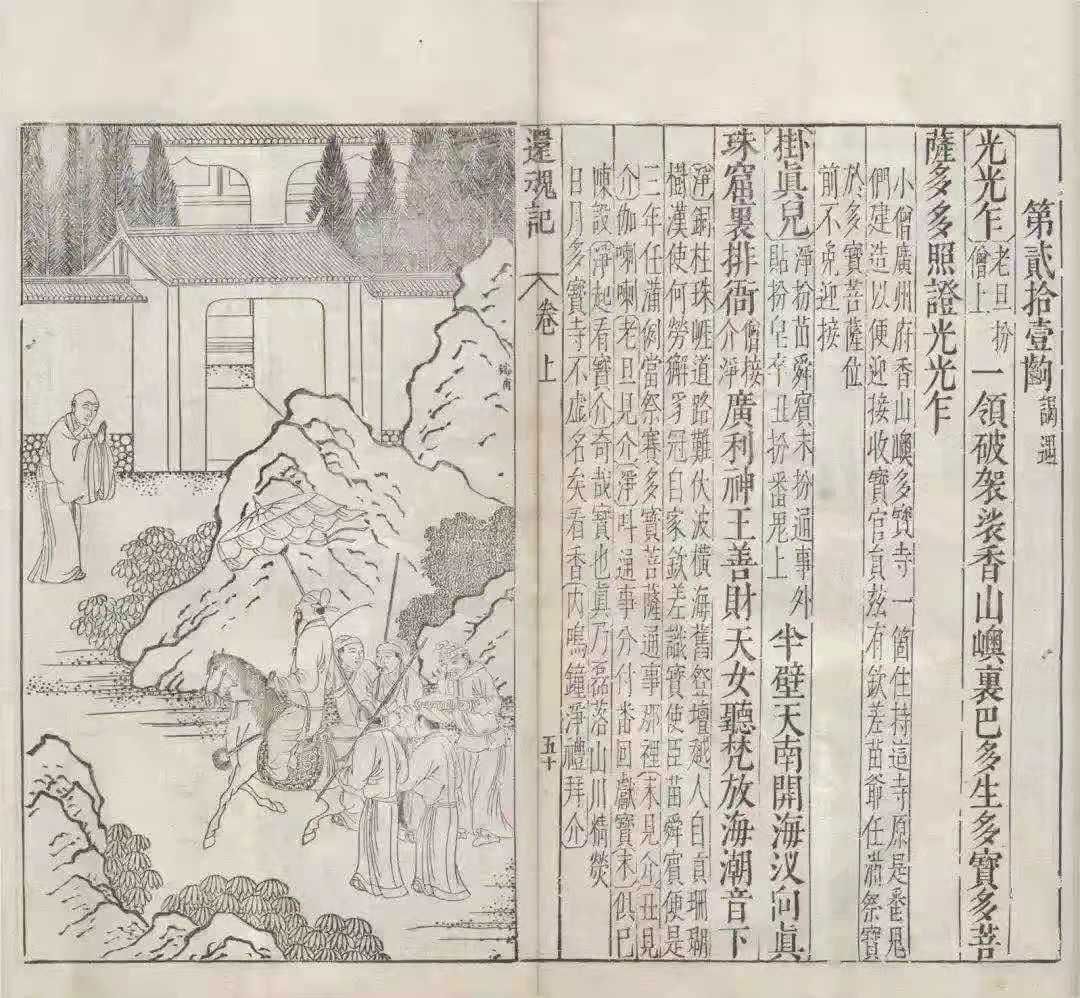 第貳拾壹齣 謁遇
光光乍 老旦扮僧上 一領破袈裟香山㠗裏巴多生多寶多菩
薩多多照證光光乍
小僧廣州府香山㠗多寶寺一箇住持這寺原是番鬼
們建造以便迎接收寶官員玆有欽差苗爺任滿祭寶
於多寶菩薩位
前不免迎接
掛眞兒 淨扮苗舜賓末扮通事外貼扮皂卒丑扮番鬼上 半壁天南開海汊向眞
珠窟裏排衙 僧接介淨 廣利神王善財天女聽梵放海潮音下
淨銅柱珠崕道路難伏波橫海舊登壇越人自貢珊瑚
樹漢使何勞獬豸冠自家欽差識寶使臣苗舜賓便是
三年任滿例當祭賽多寶菩薩通事那裡末見介丑見
介伽喇喇老旦見介淨叫通事分付番回獻寶末俱已
陳設淨起看寶介奇哉寶也眞乃磊落山川精熒
日月多寶寺不虛名矣看香內鳴鐘淨禮拜介
還魂記 卷上 五十